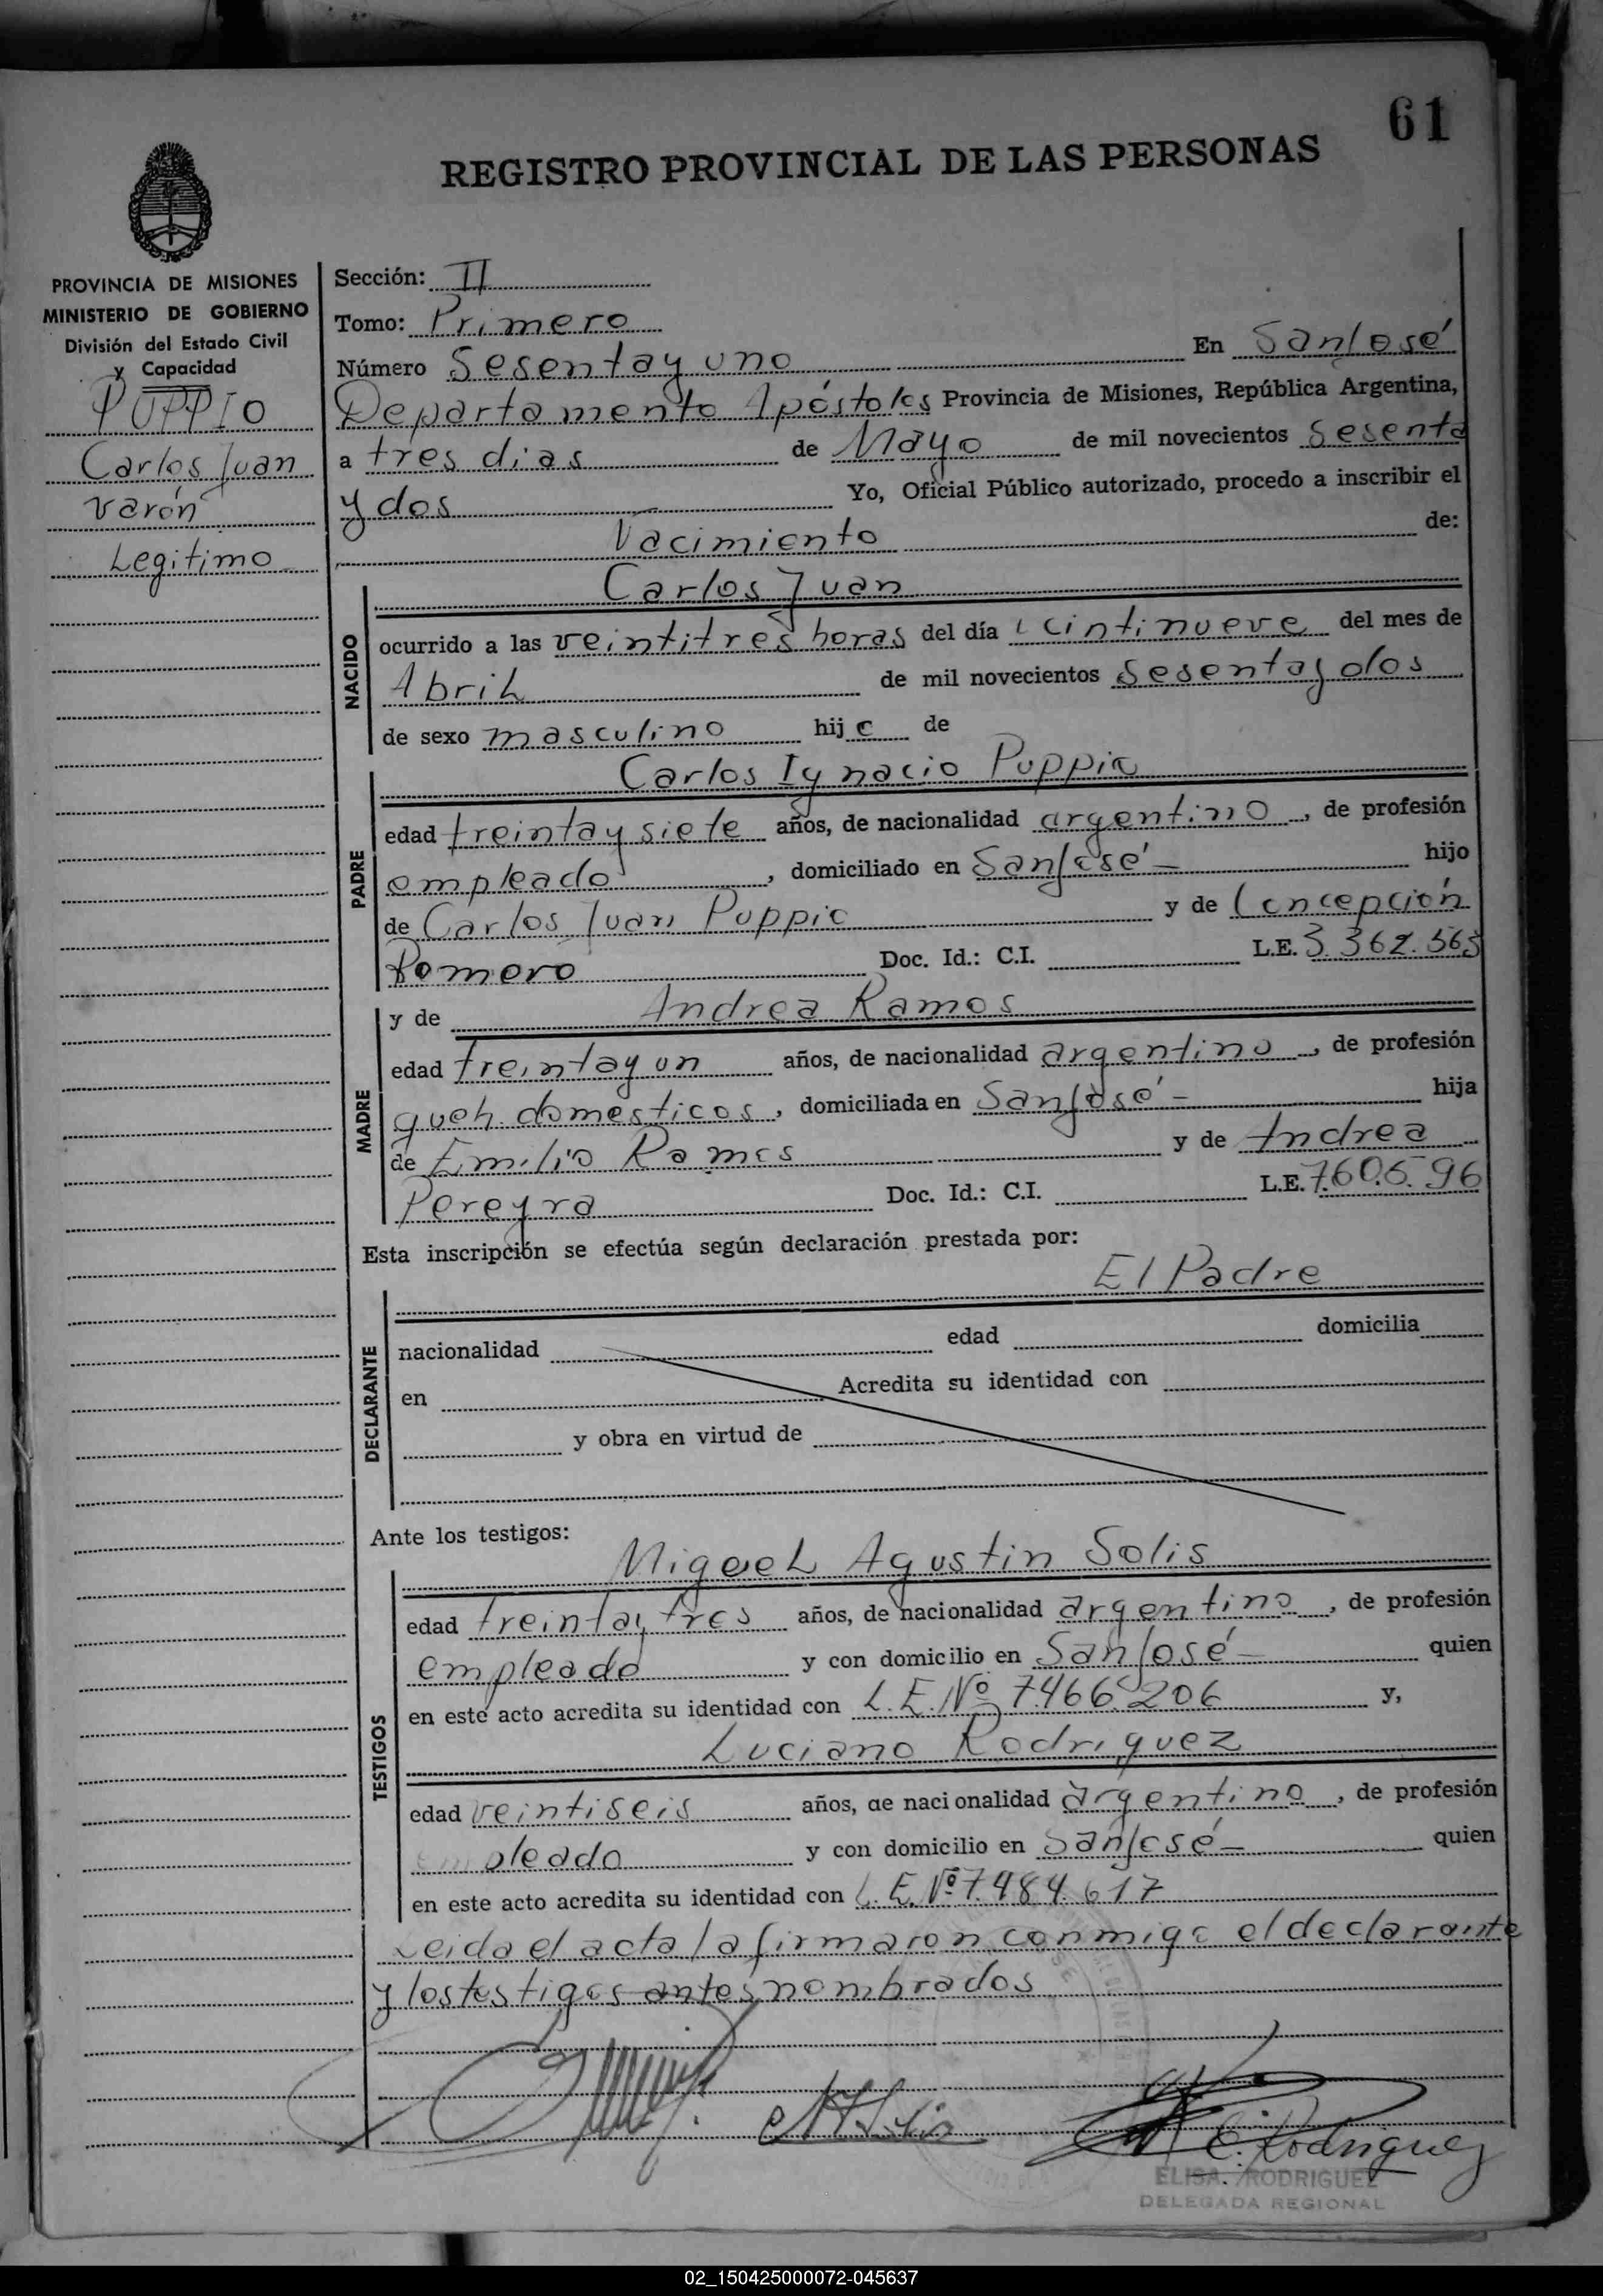 61
REGISTRO PROVINCIAL DE LAS PERSONAS
PROVINCIA DE MISIONES
MINISTERIO DE GOBIERNO
División del Estado Civil
y Capacidad
PUPPIO
Carlos Juan
varón
Legitimo
Sección: II
Tomo: Primero
Número Sesenta y uno En San José
Departamento Apóstoles Provincia de Misiones, República Argentina,
a tres dias de Mayo de mil novecientos sesenta
y dos Yo, Oficial Público autorizado, procedo a inscribir el
Nacimiento de:
Carlos Juan
NACIDO
ocurrido a las veintitres horas del día veintinueve del mes de
Abril de mil novecientos sesenta y dos
de sexo masculino hijo de
Carlos Ignacio Puppio
PADRE
edad treinta y siete años, de nacionalidad argentino, de profesión
empleado, domiciliado en San José - hijo
de Carlos Juan Puppio y de Concepción
Romero Doc. Id.: C.I. L.E. 3.362.565
y de Andrea Ramos
MADRE
edad treinta y un años, de nacionalidad argentino, de profesión
queh. domesticos, domiciliada en San José - hija
de Emilio Ramos y de Andrea
Pereyra Doc. Id.: C.I. L.E. 7.605.96
Esta inscripción se efectúa según declaración prestada por:
El Padre
DECLARANTE
nacionalidad edad domicilia
en Acredita su identidad con
y obra en virtud de
Ante los testigos:
Miguel Agustin Solis
TESTIGOS
edad treinta y tres años, de nacionalidad argentino, de profesión
empleado y con domicilio en San José - quien
en este acto acredita su identidad con L.E. Nº 7.466.206 y,
Luciano Rodriguez
edad veintiseis años, de nacionalidad argentino, de profesión
empleado y con domicilio en San José - quien
en este acto acredita su identidad con L.E. Nº 7.484.617
Leida el acta la firmaron conmigo el declarante
y los testigos antes nombrados
E. Rodriguez
ELISA RODRIGUEZ
DELEGADA REGIONAL
02_150425000072-045637